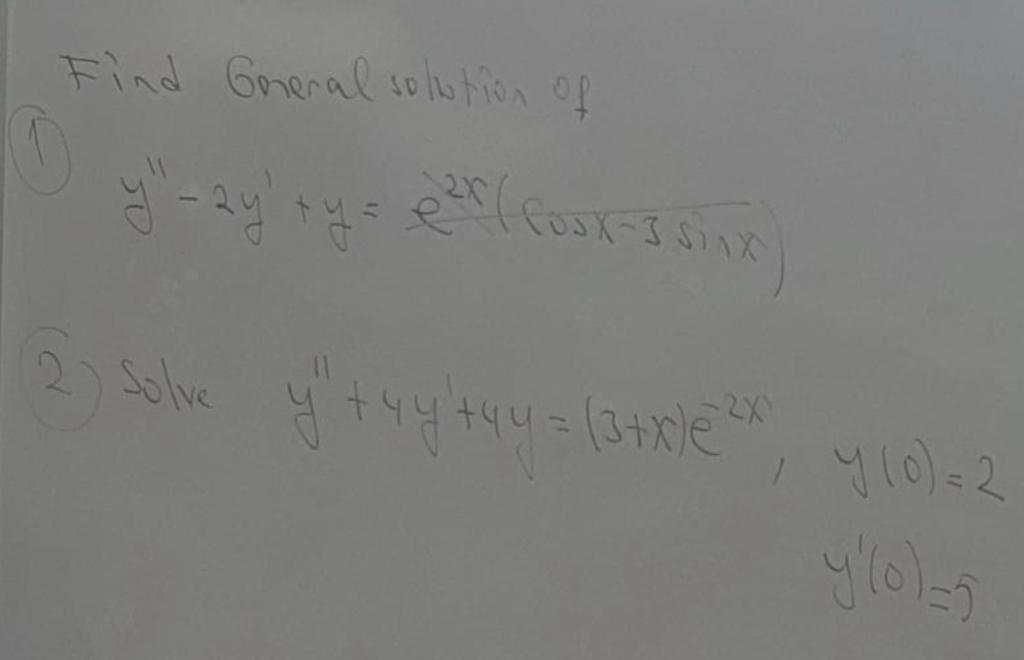 Find General solution of
① y'' - 2y' + y = e^{2x}(cosx-3sinx)
② Solve y'' + 4y' + 4y = (3+x)e^{-2x}, y(0)=2
y'(0)=5